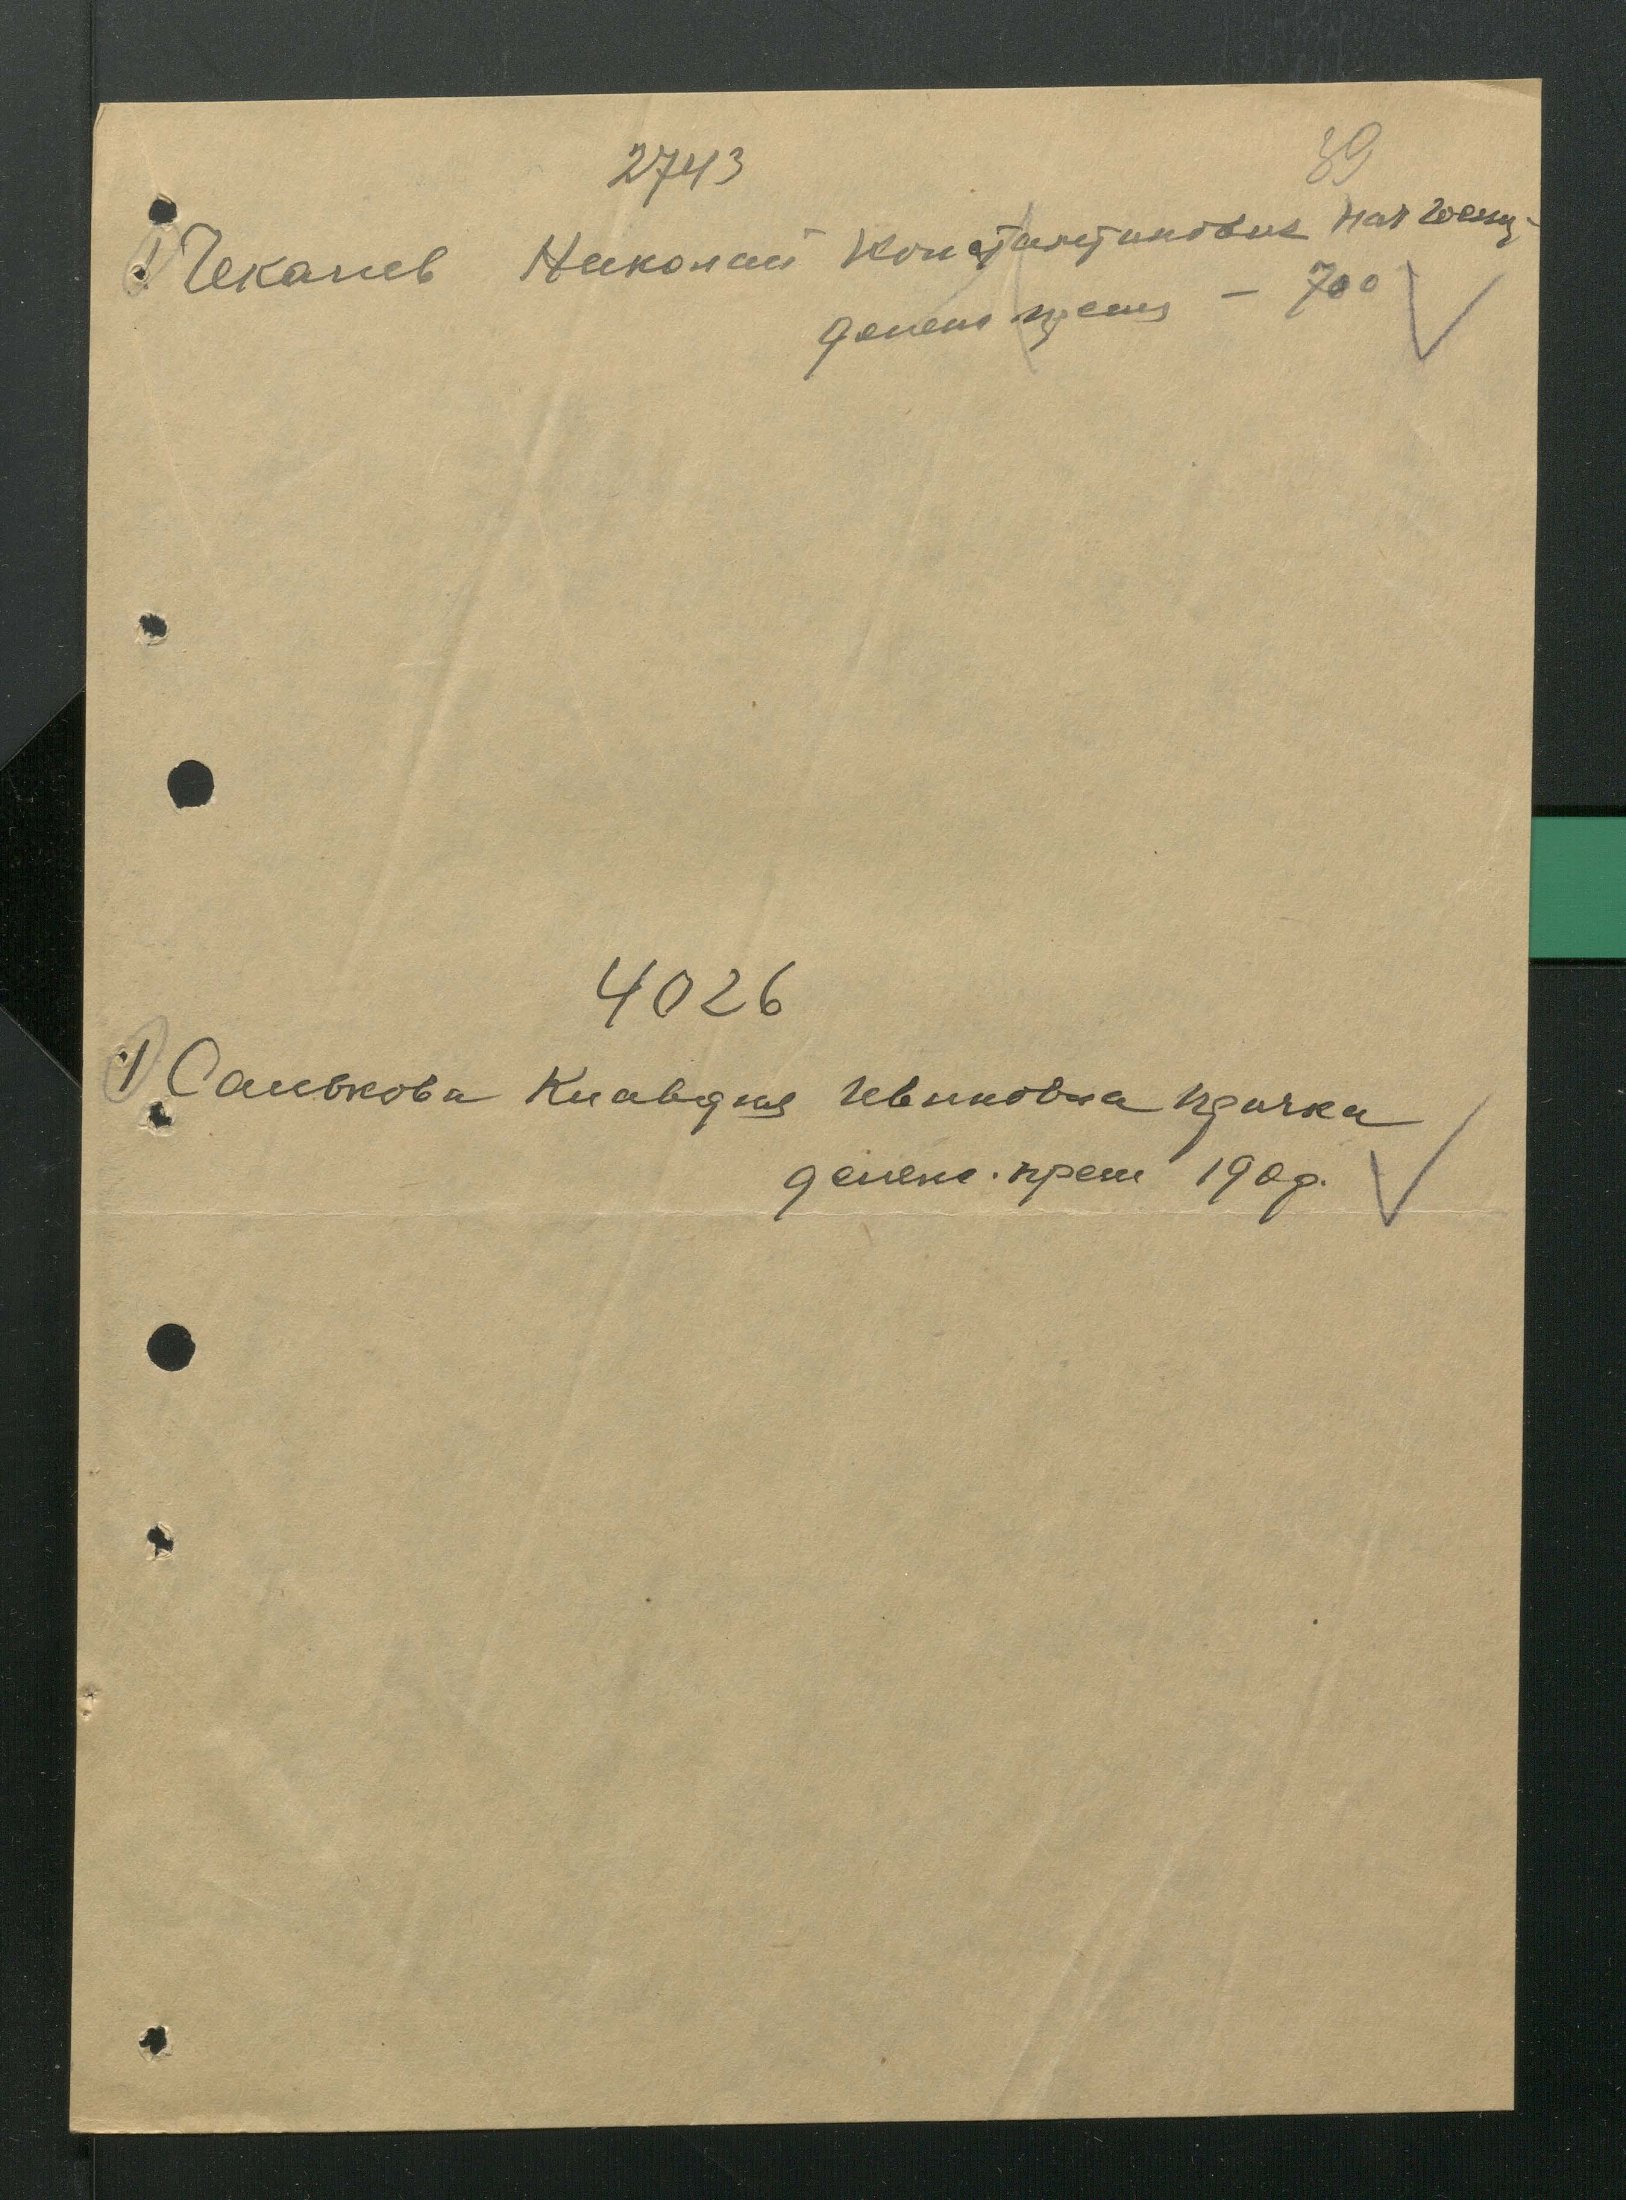 39
2743
1 Чекалев Николай Константинович нач госпи-
денеж прем - 700
4026
1) Салькова Клавдия Ивановна прачка
денеж. прем 190 р.